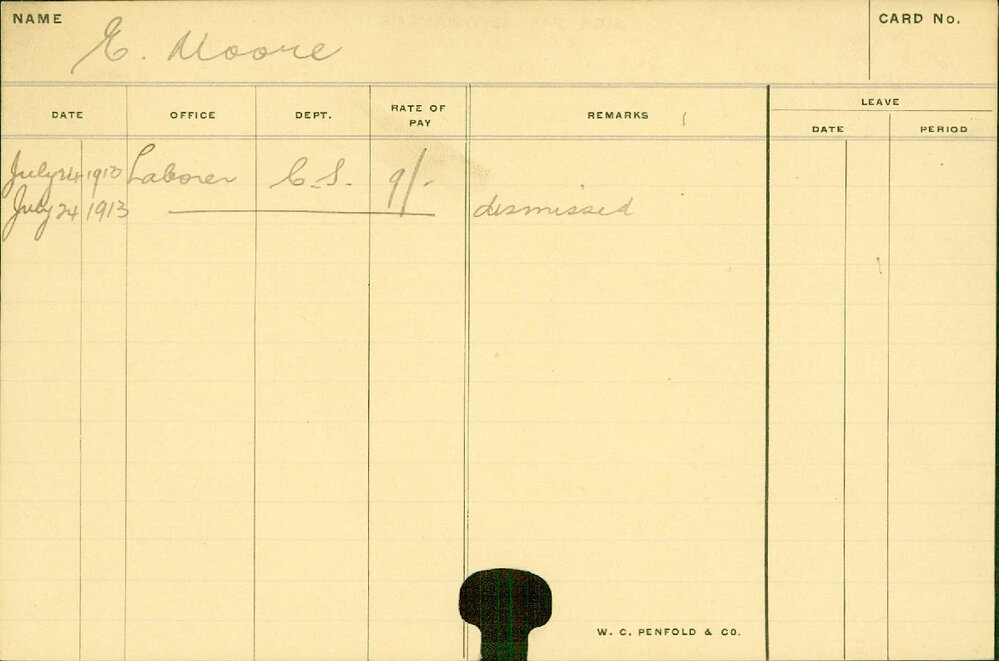 NAME E. Moore CARD No.
DATE OFFICE DEPT. RATE OF PAY REMARKS LEAVE
DATE PERIOD
July 1913 Laborer C.S. 9/-
July 24 1913 dismissed
W. C. PENFOLD & CO.